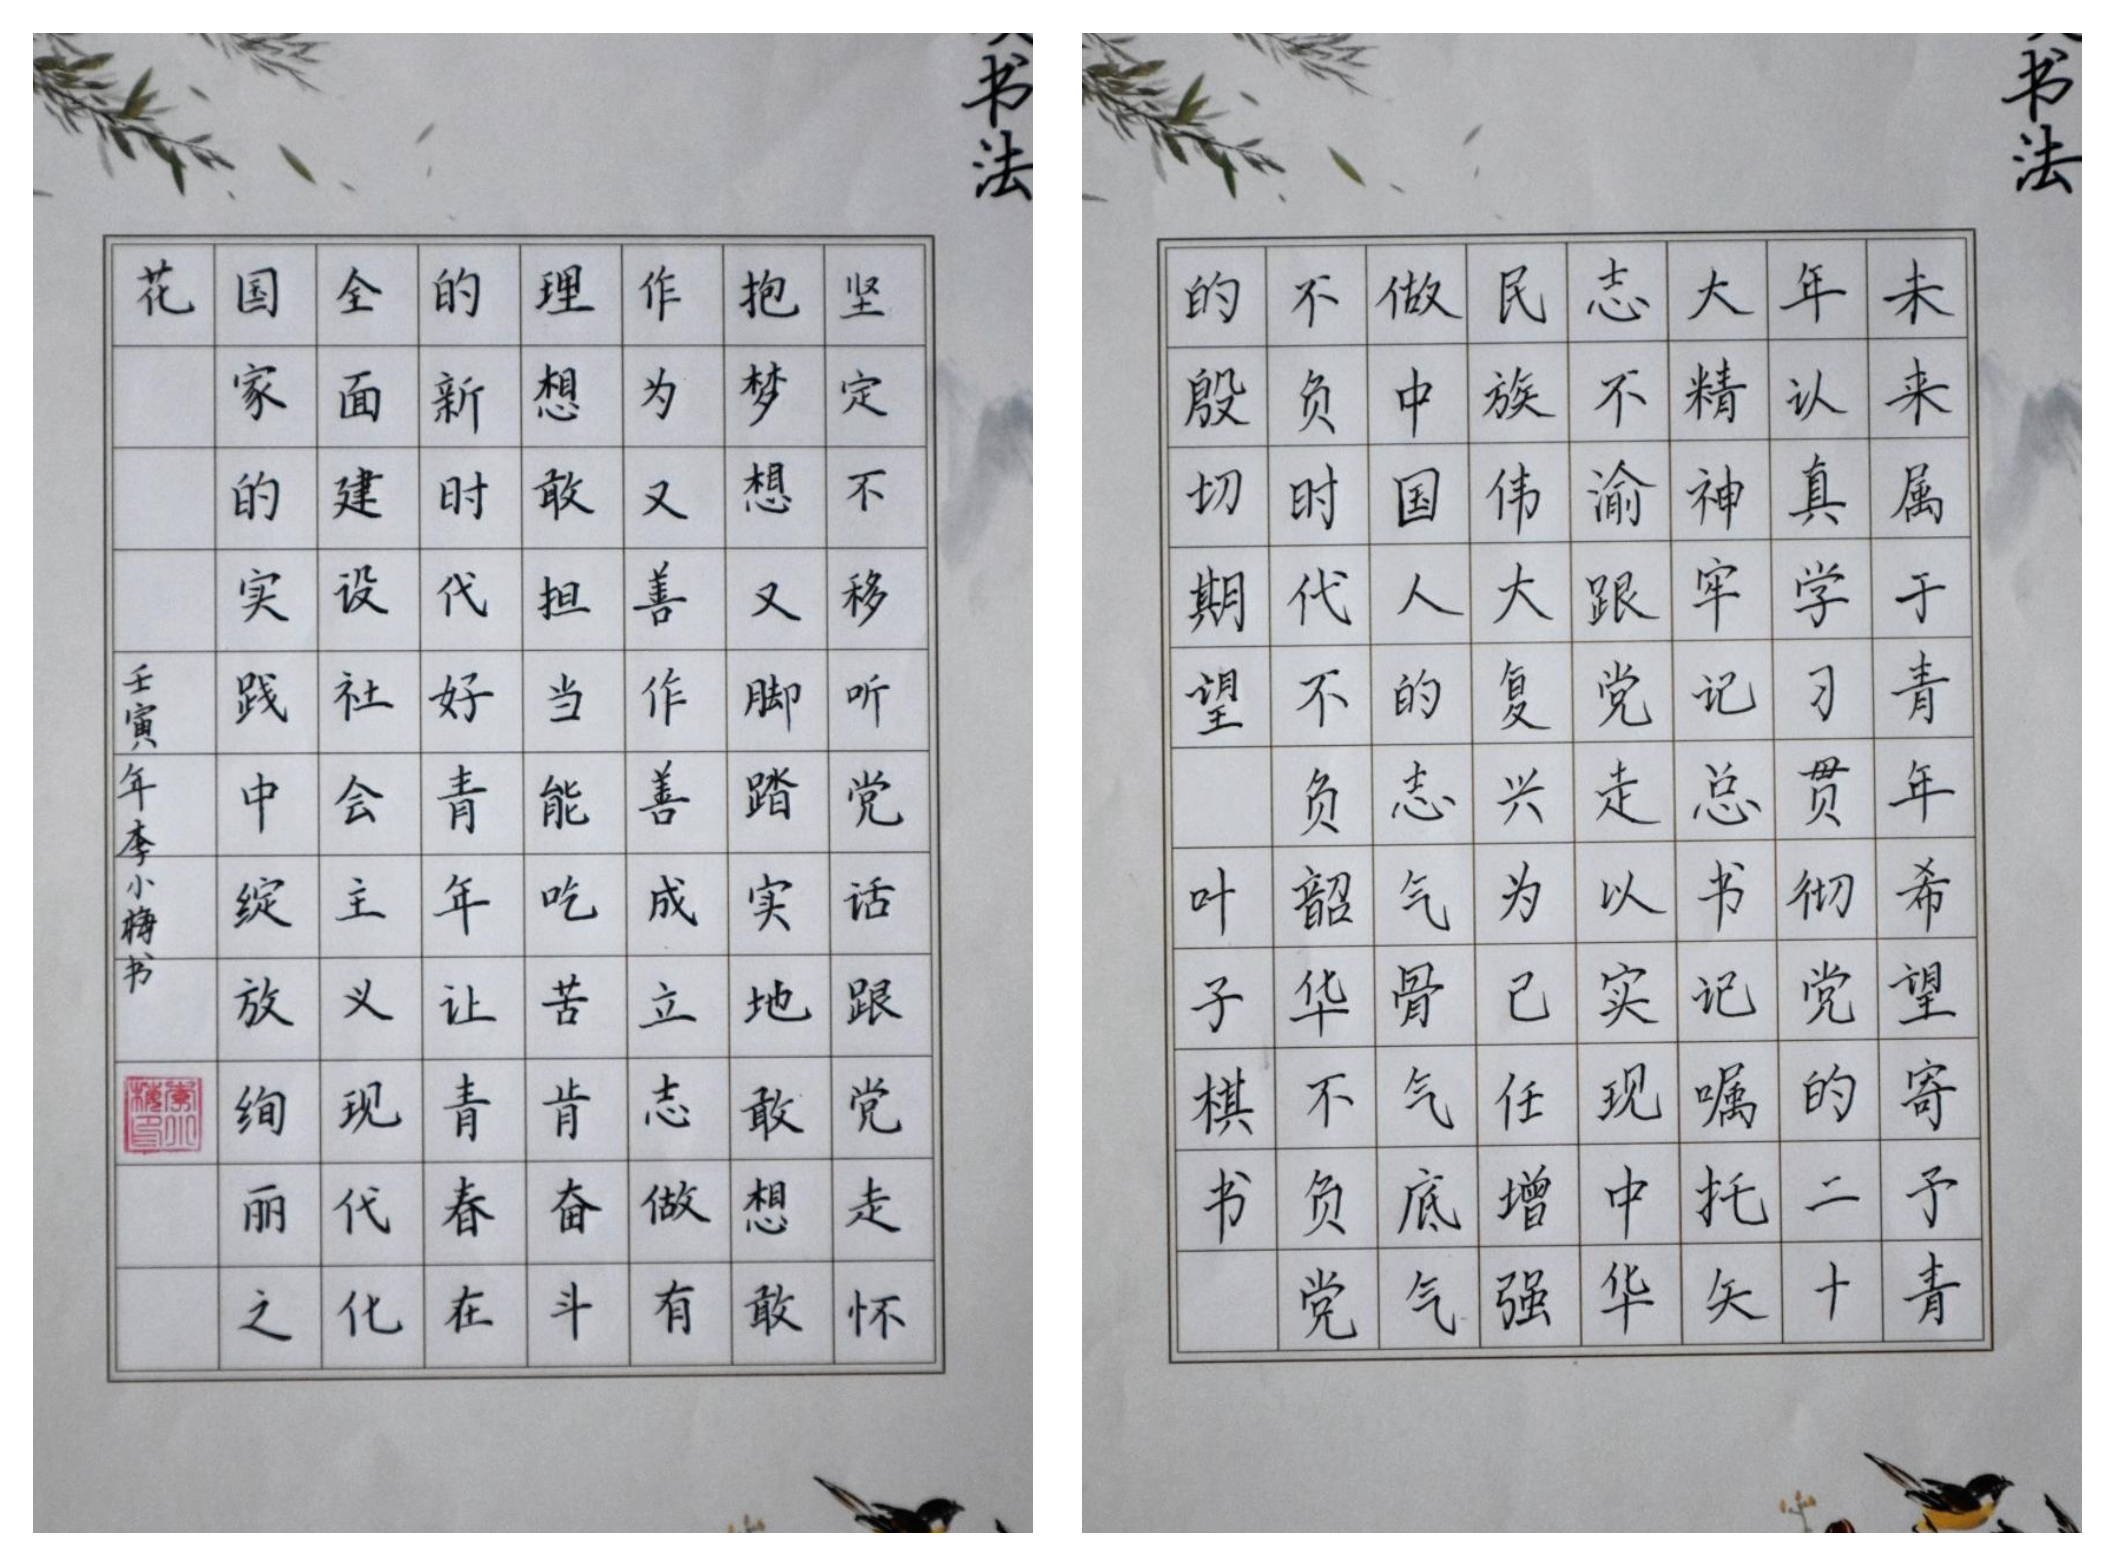 书法
坚定不移听党话跟党走怀
抱梦想又脚踏实地敢想敢
作为又善作善成立志做有
理想敢担当能吃苦肯奋斗
的新时代好青年让青春在
全面建设社会主义现代化
国家的实践中绽放绚丽之
花
壬寅年李小梅书
书法
未来属于青年希望寄予青
年认真学习贯彻党的二十
大精神牢记总书记嘱托矢
志不渝跟党走以实现中华
民族伟大复兴为己任增强
做中国人的志气骨气底气
不负时代不负韶华不负党
的殷切期望
叶子棋书